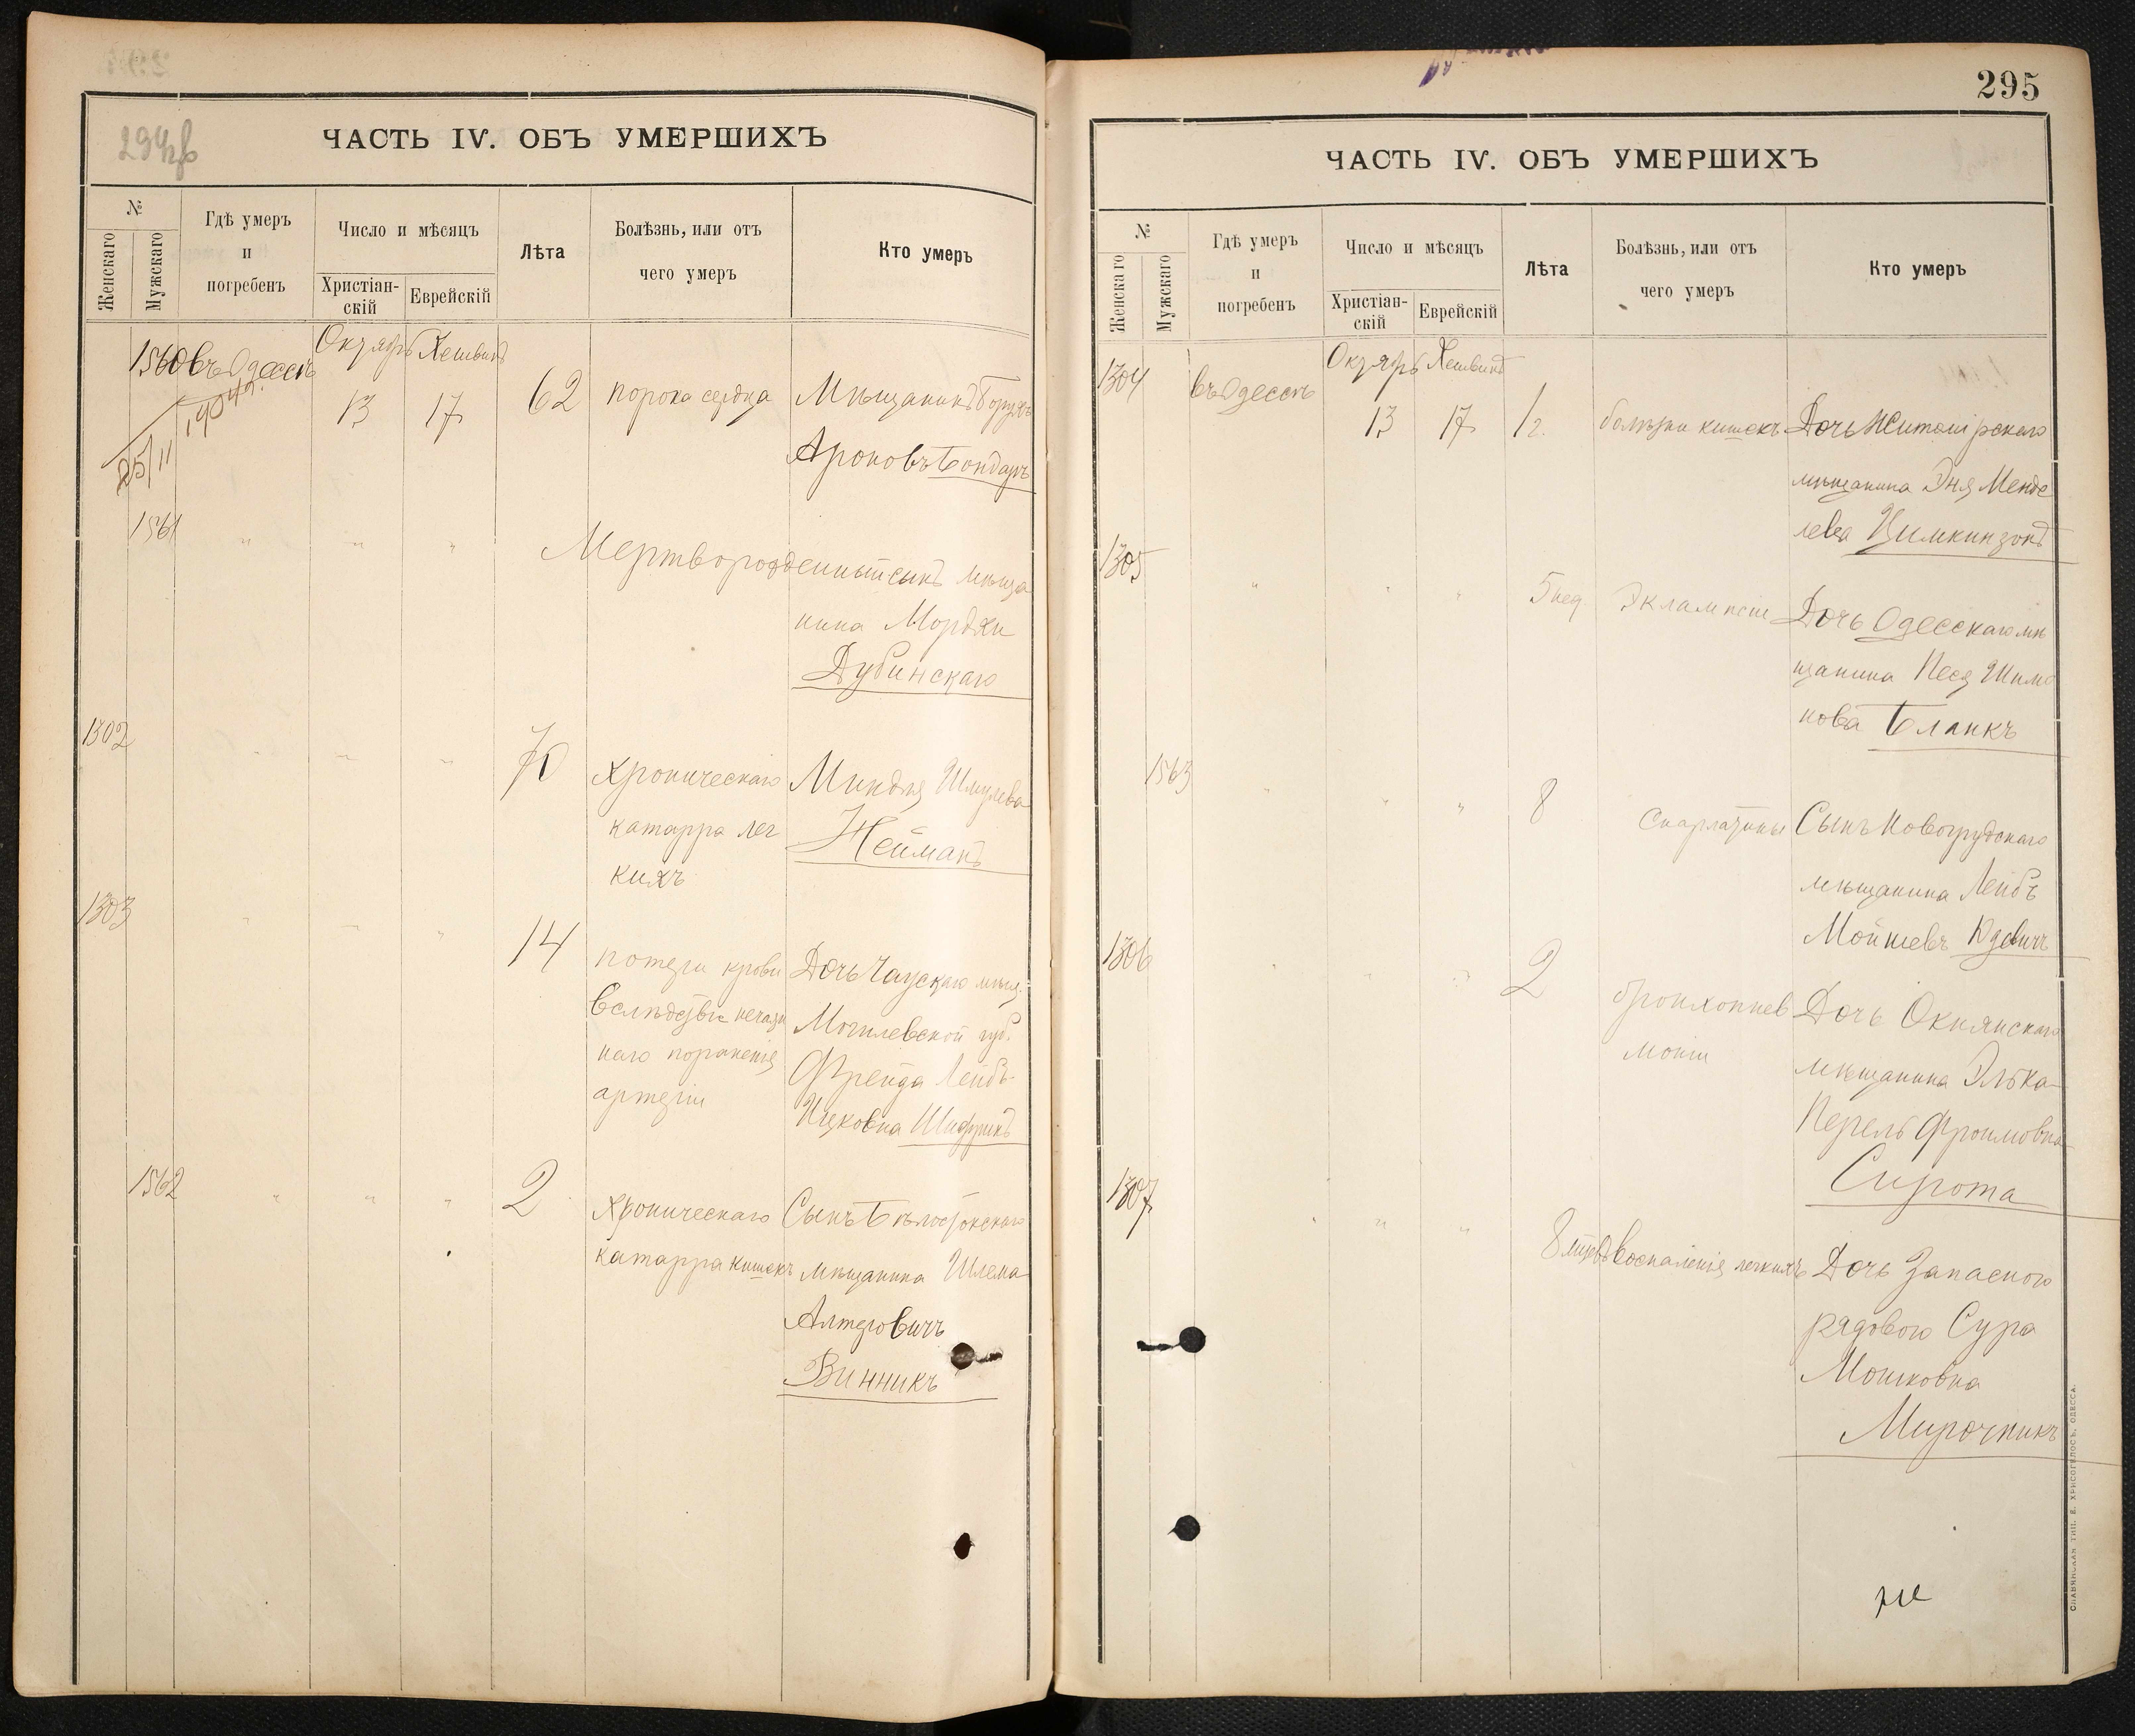 295
294об
ЧАСТЬ IV. ОБЪ УМЕРШИХЪ
№
Женскаго
Мужскаго
Гдѣ умеръ
и
погребенъ
Число и мѣсяцъ
Христіан-
скій
Еврейскій
Лѣта
Болѣзнь, или отъ
чего умеръ
Кто умеръ
1560 въ Одессѣ Октябр Хешвинъ
13 17 62 порока сердца Мѣщанинъ
Ароновъ Бондарь
25/11
1561 " " " Мертворожденный сынъ мѣща
нина Мордхи
Дубинскаго
1302 " " " 70 хроническаго Миндля Шмулева
катарра лег Нейманъ
кихъ
1303 " " " 14 потери крови Дочь Чаускаго мѣщ.
вслѣдствіе нечаян Могилевской губ.
наго пораненія Фрейда Лейбъ-
артеріи Ицковна
1562 " " " 2 хроническаго Сынъ Бѣлостокскаго
катарра кишекъ мѣщанина Шлема
Алтеровичъ
Винникъ
ЧАСТЬ IV. ОБЪ УМЕРШИХЪ
№
Женскаго
Мужскаго
Гдѣ умеръ
и
погребенъ
Число и мѣсяцъ
Христіан-
скій
Еврейскій
Лѣта
Болѣзнь, или отъ
чего умеръ
Кто умеръ
1304 въ Одессѣ Октябр Хешвинъ
13 17 1 г. болѣзни кишекъ Дочь Житомірскаго
мѣщанина Эня Менде
лева Цимкинзонъ
1305 " " " 5 нед Эклампсіи Дочь Одесскаго мѣ
щанина Песя Шимо
нова Бланкъ
1563 " " " 8 Скарлатины Сынъ Новогрудскаго
мѣщанина Лейбъ
Мойшевъ Юдевичъ
1306 " " " 2 бронхопнев Дочь Окнянскаго
моніи мѣщанина Элька-
Перель Фроимовна
Сирота
1307 " " " 8 мѣсяц воспаленія легкихъ Дочь Запаснаго
рядового Сура
Мошковна
Мирочникъ
СЛАВЯНСКАЯ ТИП. Е. ХРИСОГЕЛОСЪ, ОДЕССА.